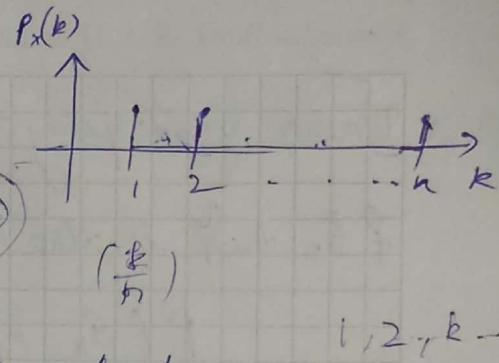 Pₓ(k)
1 2 - . ... n k
(k/n)
1, 2, k -